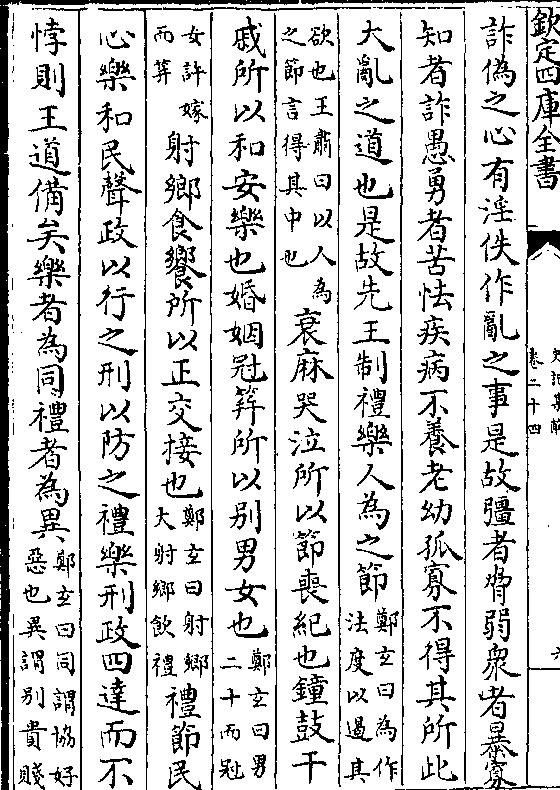 欽定四庫全書
卷二十四
詐偽之心有淫佚作亂之事是故彊者脅弱衆者暴寡
知者詐愚勇者苦怯疾病不養老幼孤寡不得其所此
大亂之道也是故先王制禮樂人為之節鄭玄曰為作法度以遏其
欲也王肅曰以人為之節言得其中也衰麻哭泣所以節喪紀也鐘鼓干
戚所以和安樂也婚姻冠笄所以別男女也鄭玄曰男二十而冠
女許嫁而笄射鄉食饗所以正交接也鄭玄曰射鄉大射鄉飲禮禮節民
心樂和民聲政以行之刑以防之禮樂刑政四達而不
悖則王道備矣樂者為同禮者為異鄭玄曰同謂協好惡也異謂別貴賤